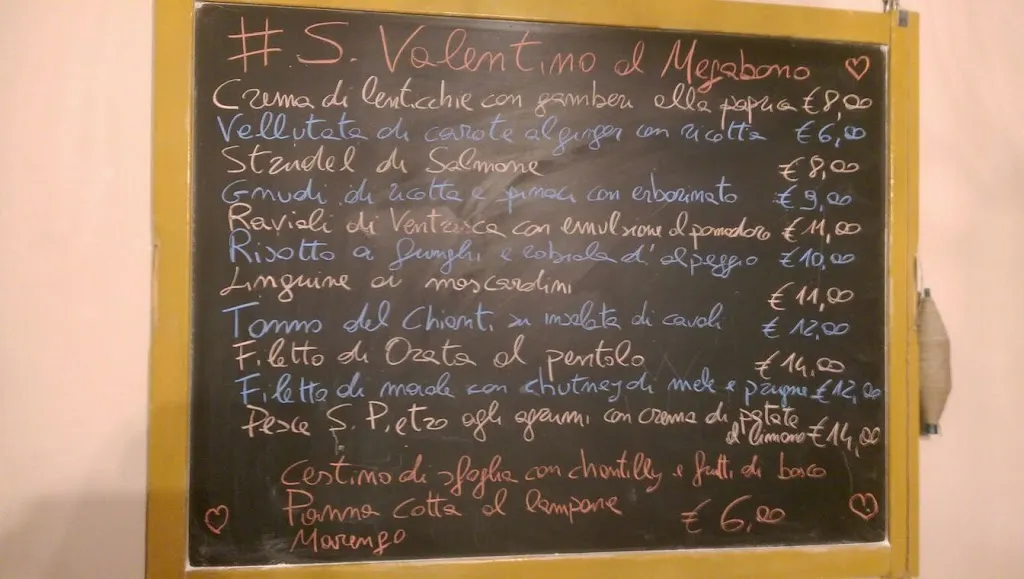 # S. Valentino al Megabono
Crema di lenticchie con gamberi alla paprica €8,00
Vellutata di carote al ginger con ricotta €6,00
Strudel di Salmone €8,00
Gnudi di ricotta e spinaci con erborinato €9,00
Ravioli di Ventresca con emulsione al pomodoro €11,00
Risotto ai funghi e robiola d'alpeggio €10,00
Linguine ai moscardini €11,00
Tonno del Chianti su insalata di cavoli €12,00
Filetto di Orata al pentolo €14,00
Filetto di maiale con chutney di mele e prugne €12,00
Pesce S. Pietro agli agrumi con crema di patate
al limone €14,00
Cestino di sfoglia con chantilly e frutti di bosco
Panna Cotta al lampone €6,00
Marengo